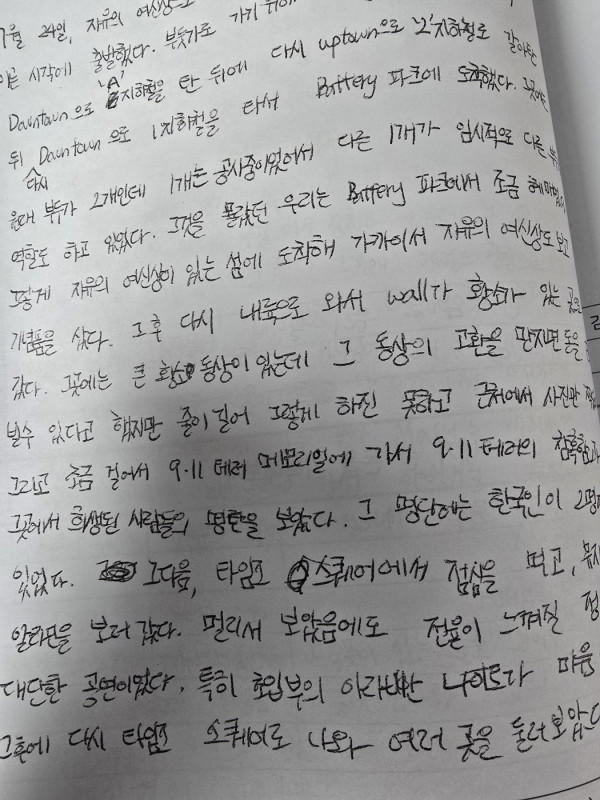 7월 24일, 자유의 여신상으로
시각에 출발했다. 부둣가로 가기 위해
Dawntown으로 'A' 지하철을 탄 뒤에 다시 uptown으로 '2' 지하철로 갈아탄
뒤 다시 Dawntown으로 1지하철을 타서 Battery 파크에 도착했다. 그곳에는
원래 부두가 2개인데 1개는 공사중이었어서 다른 1개가 임시적으로 다른
역할도 하고 있었다. 그것을 몰랐던 우리는 Battery 파크에서 조금
그렇게 자유의 여신상이 있는 섬에 도착해 가까이서 자유의 여신상도 보고
기념품을 샀다. 그후 다시 내륙으로 와서 wall가 황소가 있는 곳을
갔다. 그곳에는 큰 황소 동상이 있는데 그 동상의 고환을 만지면 돈을
벌수 있다고 했지만 줄이 길어 그렇게 하진 못하고 근처에서 사진만
그리고 조금 걸어서 9.11 테러 메모리얼에 가서 9.11 테러의 참혹함과
그곳에서 희생된 사람들의 명단을 보았다. 그 명단에는 한국인이 2명
있었다. 그다음, 타임즈 스퀘어에서 점심을 먹고, 뮤지
알라딘을 보러 갔다. 멀리서 보았음에도 전율이 느껴질 정
대단한 공연이었다. 특히 초입부의 아라비안 나이트가 마음
그후에 다시 타임즈 스퀘어로 나와 여러 곳을 둘러보았다